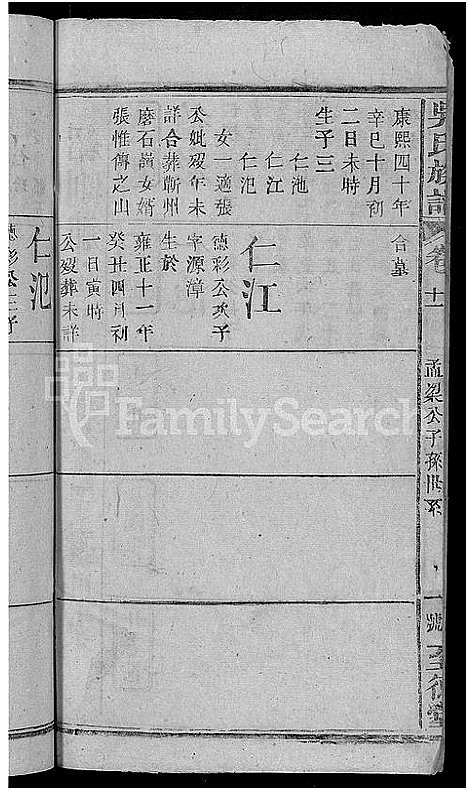 吳氏族譜
卷十一
孟梁公子孫世系
號
至德堂
康熙四十年
辛巳十月初
二日未時
生子三
仁池
仁江
仁氾
女一適張
公妣歿年未
詳合葬衡州
磨石嶺女婿
張惟傳之山
合墓
仁江
德彩公次子
字源漳
生於
雍正十一年
癸丑四月初
一日寅時
公歿葬未詳
仁氾
德彩公三子
FamilySearch